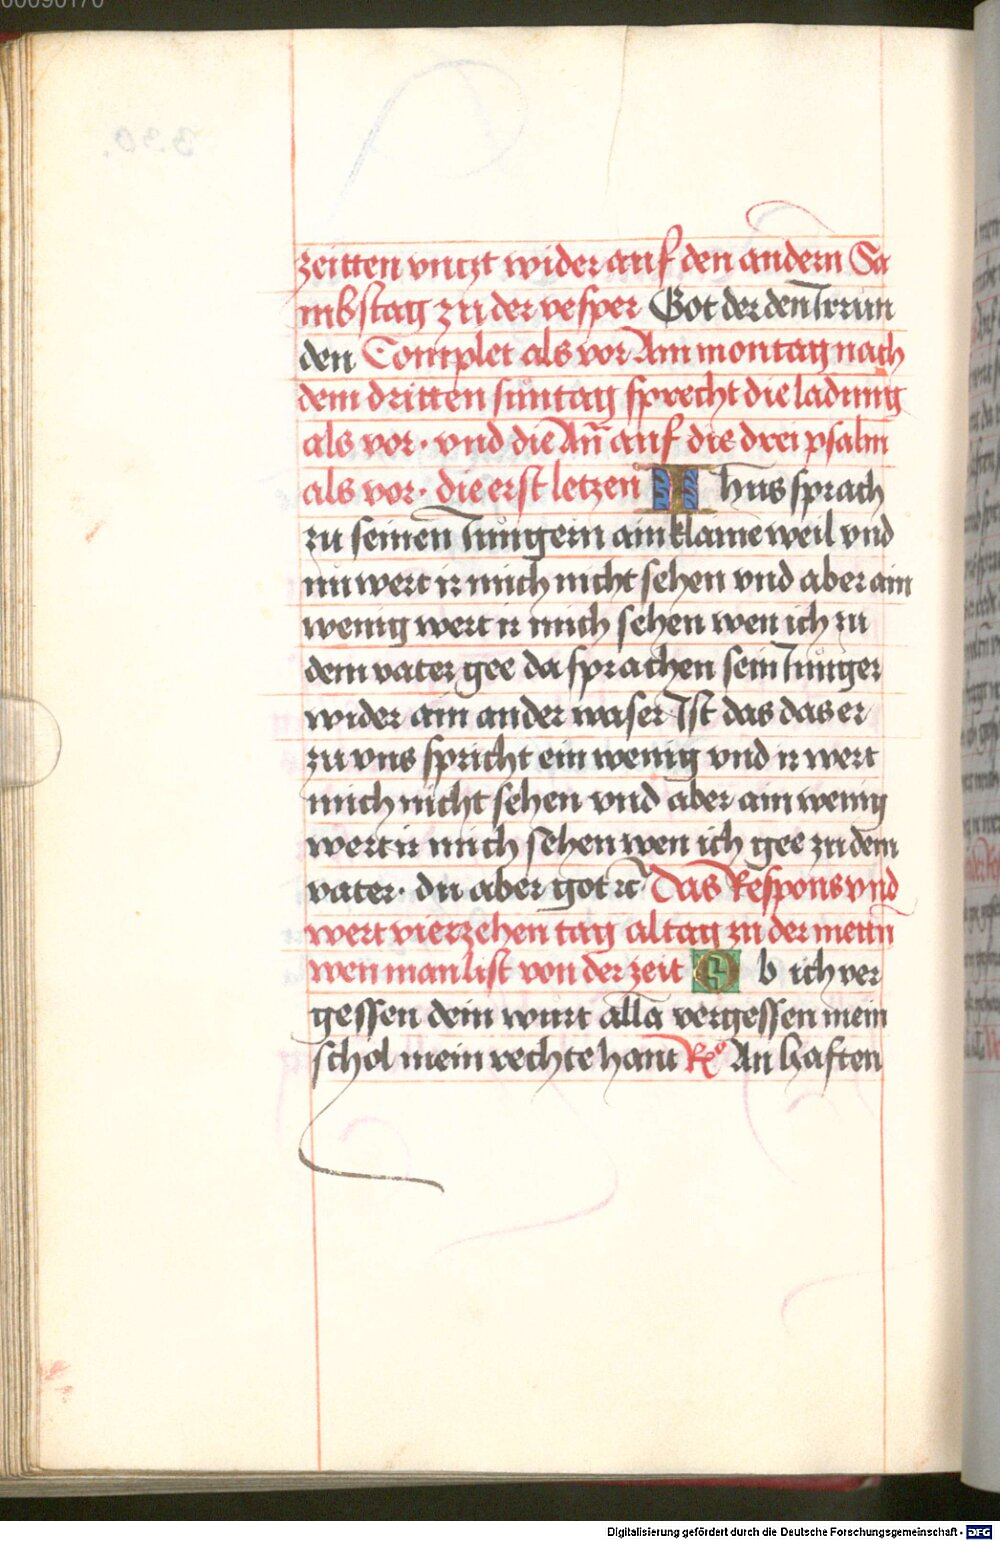 00090170
330.
zeitten vntzt wider auf den andern Sa
mbstag zu der vesper Got der den Irrun
den Complet als vor Am montag nach
dem dritten suntag sprecht die ladung
als vor · vnd die Añ auf die drei psalm
als vor · die erst letzen Ihus sprach
zu seinen Iungern ain klaine weil vnd
nu wert ir mich nicht sehen vnd aber ain
wenig wert ir mich sehen wen ich zu
dem vater gee da sprachen sein Iunger
wider ain ander waser Ist das das er
zu vns spricht ein wenig vnd ir wert
mich nicht sehen vnd aber ain wenig
wert ir mich sehen wen ich gee zu dem
vater · du aber got rc Das Respons vnd
wert vierzehen tag altag zu der mettn
wen man list von der zeit Ob ich ver
gessen dein wurt allā vergessen mein
schol mein rechte hant Rx An haften
Digitalisierung gefördert durch die Deutsche Forschungsgemeinschaft - DFG